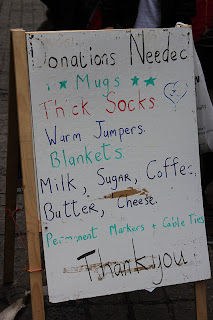 Donations Needed
Mugs
Thick Socks
Warm Jumpers.
Blankets.
Milk, Sugar, Coffee.
Butter, Cheese.
Permanent Markers + Cable Ties
Thankyou